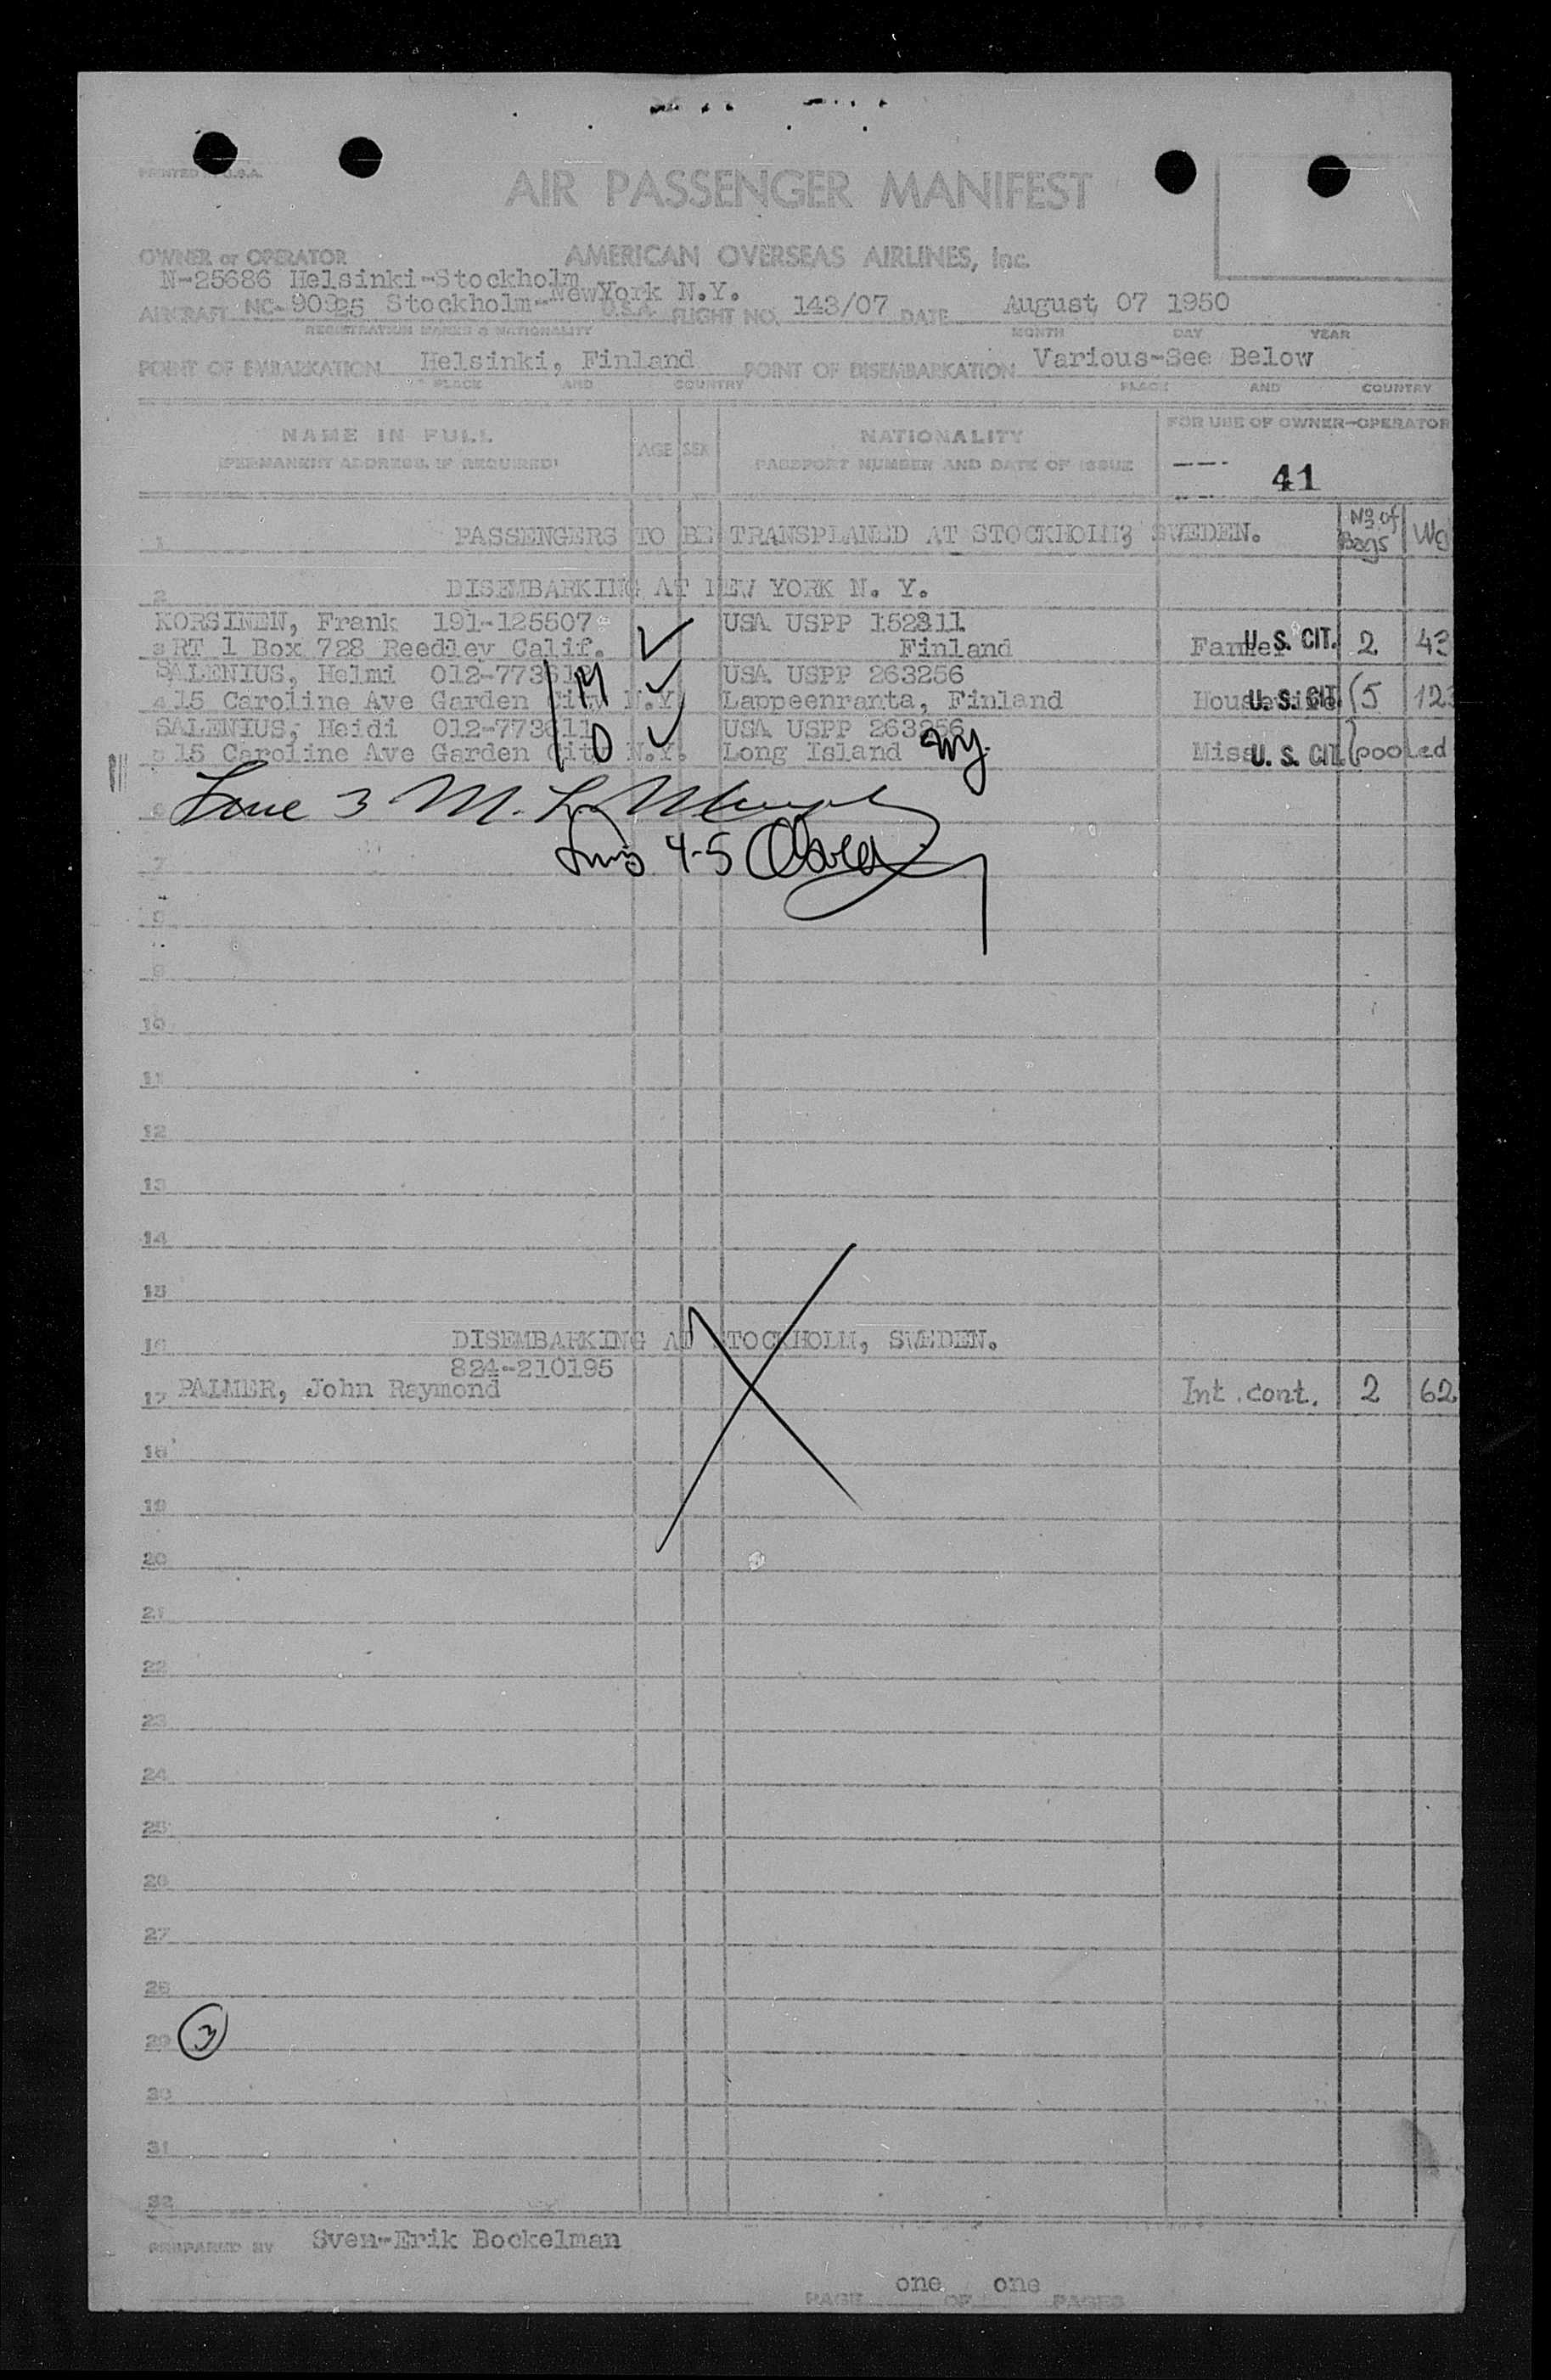 PRINTED IN U.S.A.
AIR PASSENGER MANIFEST
OWNER or OPERATOR AMERICAN OVERSEAS AIRLINES, Inc.
N-25686 Helsinki-Stockholm
AIRCRAFT NC-90925 Stockholm-NewYork N.Y. U.S.A. FLIGHT NO. 143/07 DATE August, 07 1950
REGISTRATION MARKS & NATIONALITY MONTH DAY YEAR
POINT OF EMBARKATION Helsinki, Finland POINT OF DISEMBARKATION Various-See Below
PLACE AND COUNTRY PLACE AND COUNTRY
NAME IN FULL
(PERMANENT ADDRESS, IF REQUIRED)
AGE SEX
NATIONALITY
PASSPORT NUMBER AND DATE OF ISSUE
FOR USE OF OWNER-OPERATOR
41
1 PASSENGERS TO BE TRANSPLANED AT STOCKHOLM; SWEDEN. No of Bags Wg
2 DISEMBARKING AT NEW YORK N. Y.
KORSINEN, Frank 191-125507 USA USPP 152311
3 RT 1 Box 728 Reedley Calif. Finland Farmer U. S. CIT. 2 43
SALENIUS, Helmi USA USPP 263256
4 15 Caroline Ave Garden City N.Y. M Lappeenranta, Finland Housewife U. S. CIT. 5 123
SALENIUS, Heidi 012-773611 USA USPP 263256
5 15 Caroline Ave Garden City N.Y. D Long Island NY. Miss U. S. CIT. pooled
6 Line 3 M. L. Murphy
7 Lines 4-5
8
9
10
11
12
13
14
15
16 DISEMBARKING AT STOCKHOLM, SWEDEN.
824-210195
17 PALMER, John Raymond Int. cont. 2 62
18
19
20
21
22
23
24
25
26
27
28
29 3
30
31
32
PREPARED BY Sven-Erik Bockelman
PAGE one OF one PAGES